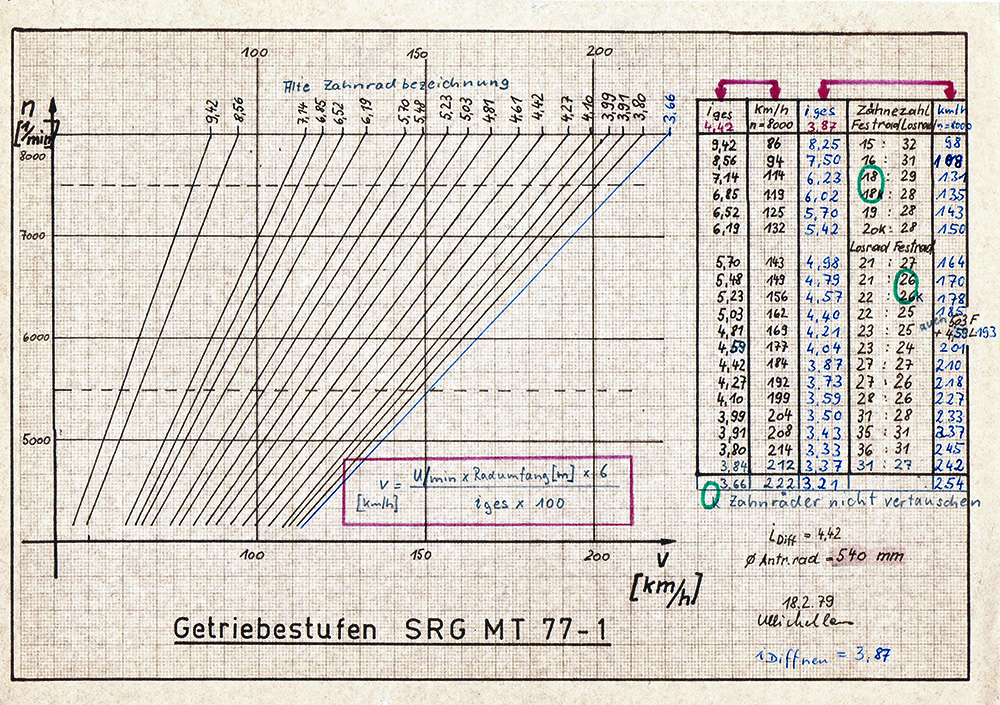 100 150 200
Alte Zahnradbezeichnung
n
[1/min]
9,42 8,56 7,14 6,85 6,52 6,19 5,70 5,48 5,23 5,03 4,81 4,61 4,42 4,27 4,10 3,99 3,91 3,80 3.66
8000
7000
6000
5000
v = U/min x Radumfang[m] x 6
[km/h] iges x 100
100 150 200
V
[km/h]
Getriebestufen SRG MT 77-1
iges km/h iges Zähnezahl km/h
4,42 n=8000 3,87 Festrad Losrad n=8000
9,42 86 8,25 15 : 32 98
8,56 94 7,50 16 : 31 108
7,14 114 6,23 18 : 29 131
6,85 119 6,02 18k : 28 135
6,52 125 5,70 19 : 28 143
6,19 132 5,42 20k : 28 150
Losrad Festrad
5,70 143 4,98 21 : 27 164
5,48 149 4,79 21 : 26 170
5,23 156 4,57 22 : 26k 178
5,03 162 4,40 22 : 25 185
4,81 169 4,21 23 : 25 auch
4,59 177 4,04 23 : 24 201
4,42 184 3,87 27 : 27 210
4,27 192 3,73 27 : 26 218
4,10 199 3,59 28 : 26 227
3,99 204 3,50 31 : 28 233
3,91 208 3,43 35 : 31 237
3,80 214 3,33 36 : 31 245
3,84 212 3,37 31 : 27 242
3,66 222 3,21 254
Zahnräder nicht vertauschen
iDiff = 4,42
Ø Antr.rad = 540 mm
18.2.79
iDiffneu = 3,87